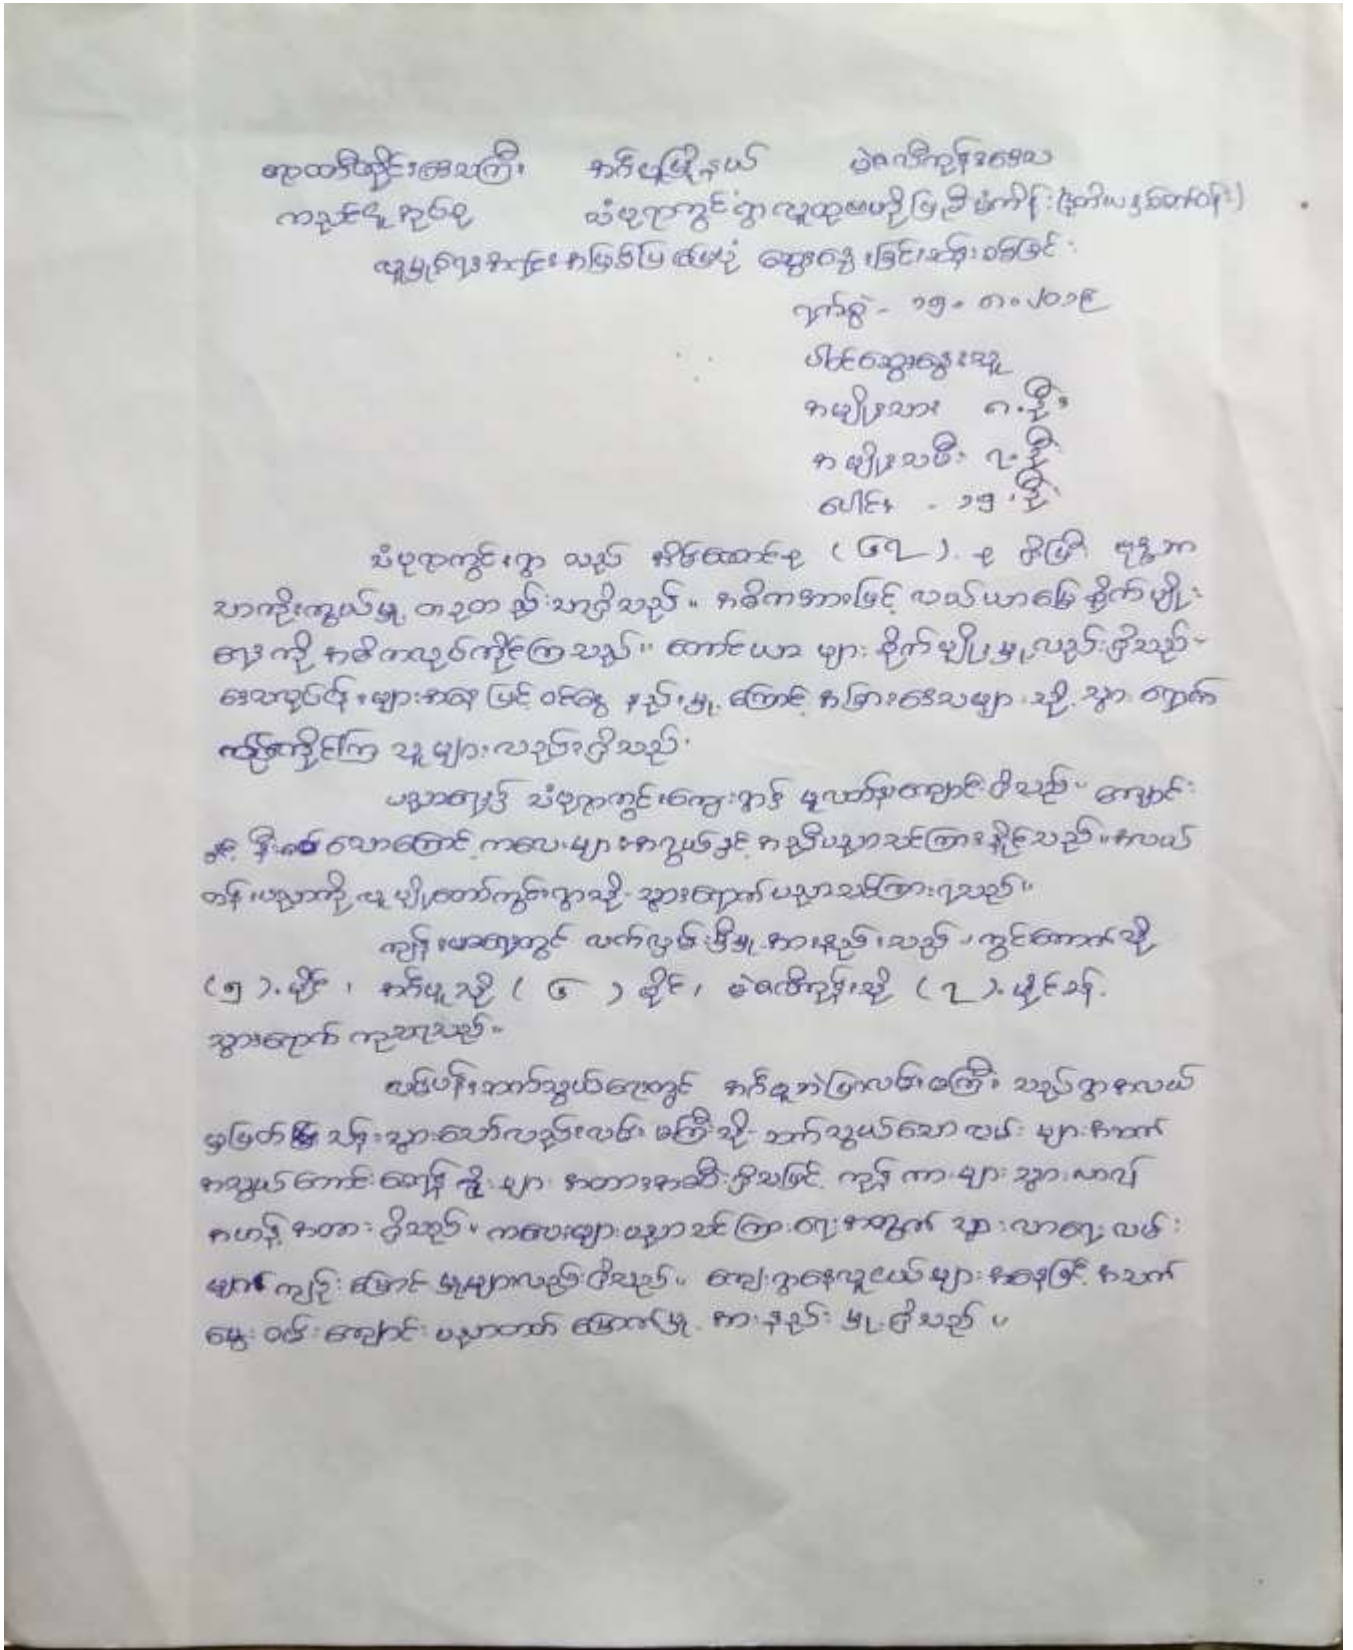 ဧရာဝတီတိုင်းဒေသကြီး အင်္ဂပူမြို့နယ် မဲဇလီကုန်းဒေသ
ကညင်ငူအုပ်စု သံပုရာကွင်းရွာလူထုဗဟိုပြုစီမံကိန်း(ဒုတိယနှစ်တာဝန်း)
လူမှုရေးအခြေအမြစ်ပြမြေပုံ ဆွေးနွေးခြင်းဆန်းစစ်ခြင်း
ရက်စွဲ - ၁၅.၈.၂၀၁၉
ပါဝင်ဆွေးနွေးသူ
အမျိုးသား ၈.ဦး
အမျိုးသမီး ၇.ဦး
ပေါင်း - ၁၅.ဦး
သံပုရာကွင်းရွာ သည် အိမ်ထောင်စု (၆၇).စု ရှိပြီး ဗုဒ္ဓဘာ
သာကိုးကွယ်မှု တခုတည်းသာရှိသည်။ အဓိကအားဖြင့် လယ်ယာမြေစိုက်ပျိုး
ရေးကို အဓိကလုပ်ကိုင်ကြသည်။ တောင်ယာများ စိုက်ပျိုးမှုလည်းရှိသည်။
ဒေသလုပ်ငန်းများအနေဖြင့် ဝင်ငွေ နည်းမှုကြောင့် အခြားဒေသများသို့ သွားရောက်
လုပ်ကိုင်ကြသူများလည်းရှိသည်။
ပညာရေး၌ သံပုရာကွင်းကျေးရွာ၌ မူလတန်းကျောင်းရှိသည်။ ကျောင်း
နှင့် နီးသောကြောင့် ကလေးများအလွယ်နှင့် အညီပညာသင်ကြားနိုင်သည်။ အလယ်
တန်းပညာကို ကွင်းရွာသို့ သွားရောက်ပညာသင်ကြားရသည်။
ကျန်းမာရေးတွင် လက်လှမ်းမှီမှုအားနည်းသည်။ ကွင်းကောက်သို့
(၅).မိုင်၊ အင်္ဂပူသို့ (၆) မိုင်၊ မဲဇလီကုန်းသို့ (၇).မိုင်ခန့်
သွားရောက် ကုသရသည်။
လမ်းပန်းဆက်သွယ်ရေးတွင် အင်္ဂပူဘဲပြာလမ်းမကြီး သည်ရွာအလယ်
မှဖြတ် သန်းသွားသော်လည်းလမ်းမကြီးသို့ ဆက်သွယ်သောလမ်းများအဆက်
အသွယ်ကောင်း အတားအဆီးရှိသဖြင့် ကုန်ကားများသွားလာလျှင်
အဟန့်အတားရှိသည်။ ကလေးများပညာသင်ကြားရေးအတွက် သွားလာရေးလမ်း
များကျဉ်းမြောင်းမှုများလည်းရှိသည်။ ကျေးရွာနေလူငယ်များအနေဖြင့် အသက်
မွေးဝမ်းကျောင်းပညာတတ်မြောက်မှု အားနည်းမှုရှိသည်။